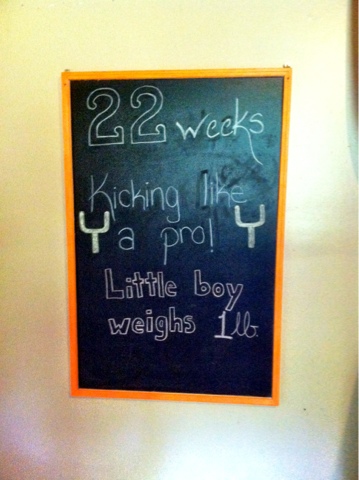 22 weeks
Kicking like
a pro!
Little boy
weighs 1lb.